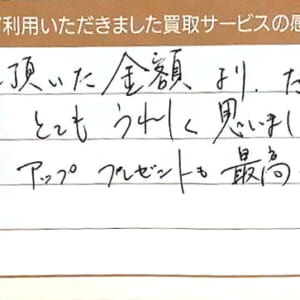 利用いただきました買取サービスの感
頂いた金額より、た
とてもうれしく思いまし
アッププレゼントも最高